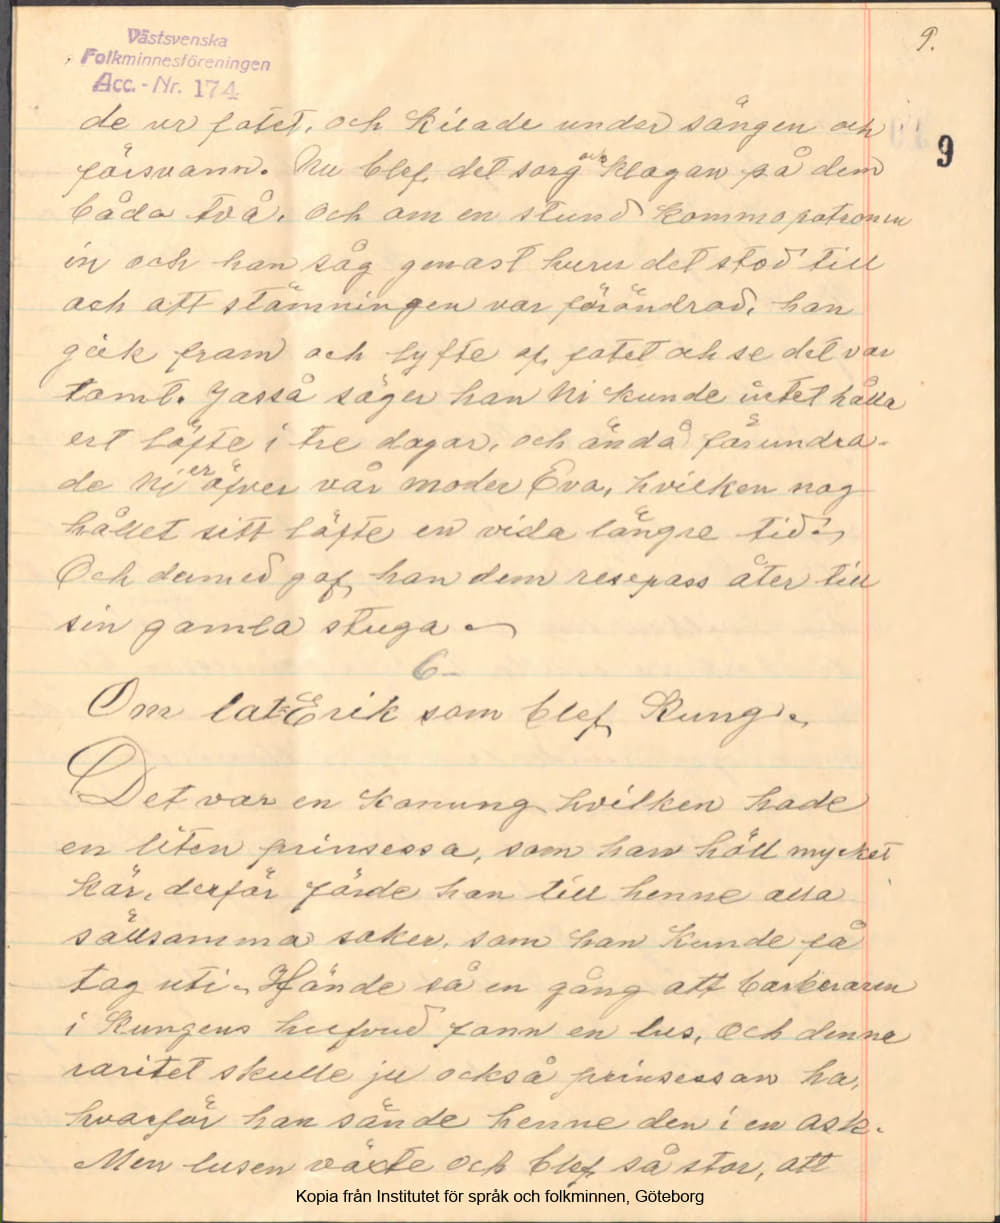 Västsvenska
Folkminnesföreningen
Acc. - Nr. 174
9.
9
de ur fatet, och kilade under sängen och
försvann. Nu blef det sorg och klagan på dem
båda två. Och om en stund kommo patronen
in och han såg genast huru det stod till
och att stämningen var förändrad, han
gick fram och lyfte af fatet och se det var
tomt. Jasså säger han Ni kunde intet hålla
ert löfte i tre dagar, och ändå förundra-
de Ni er öfver vår moder Eva, hvilken nog
hållet sitt löfte en vida längre tid.
Och dermed gaf han dem respass åter till
sin gamla stuga.
6
Om lat-Erik som blef Kung.
Det var en konung hvilken hade
en liten prinsessa, som han höll mycket
kär, derför förde han till henne alla
sällsamma saker, som han kunde få
tag uti. Hände så en gång att barberaren
i Kungens hufvud fann en lus, och denna
raritet skulle ju också prinsessan ha,
hvarför han sände henne den i en ask.
Men lusen växte och blef så stor, att
Kopia från Institutet för språk och folkminnen, Göteborg